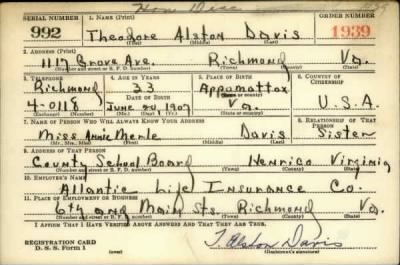 Hon Disc
SERIAL NUMBER 1. NAME (Print) ORDER NUMBER
992 Theodore Alston Davis 1939
(First) (Middle) (Last)
2. ADDRESS (Print)
1117 Grove Ave. Richmond Va.
(Number and street or R. F. D. number) (Town) (County) (State)
3. TELEPHONE 4. AGE IN YEARS 5. PLACE OF BIRTH 6. COUNTRY OF CITIZENSHIP
Richmond 33 Appomattox
(Exchange) DATE OF BIRTH (Town or county)
4-0118 June 24, 1907 Va. U.S.A.
(Number) (Mo.) (Day) (Yr.) (State or country)
7. NAME OF PERSON WHO WILL ALWAYS KNOW YOUR ADDRESS 8. RELATIONSHIP OF THAT PERSON
Miss Annie Merle Davis Sister
(Mr., Mrs., Miss) (First) (Middle) (Last)
9. ADDRESS OF THAT PERSON
County School Board Henrico Virginia
(Number and street or R. F. D. number) (Town) (County) (State)
10. EMPLOYER'S NAME
Atlantic Life Insurance Co.
11. PLACE OF EMPLOYMENT OR BUSINESS
6th and Main Sts. Richmond Va.
(Number and street or R. F. D. number) (Town) (County) (State)
I AFFIRM THAT I HAVE VERIFIED ABOVE ANSWERS AND THAT THEY ARE TRUE.
REGISTRATION CARD
D. S. S. Form 1 (over) T. Alston Davis
(Registrant's signature)